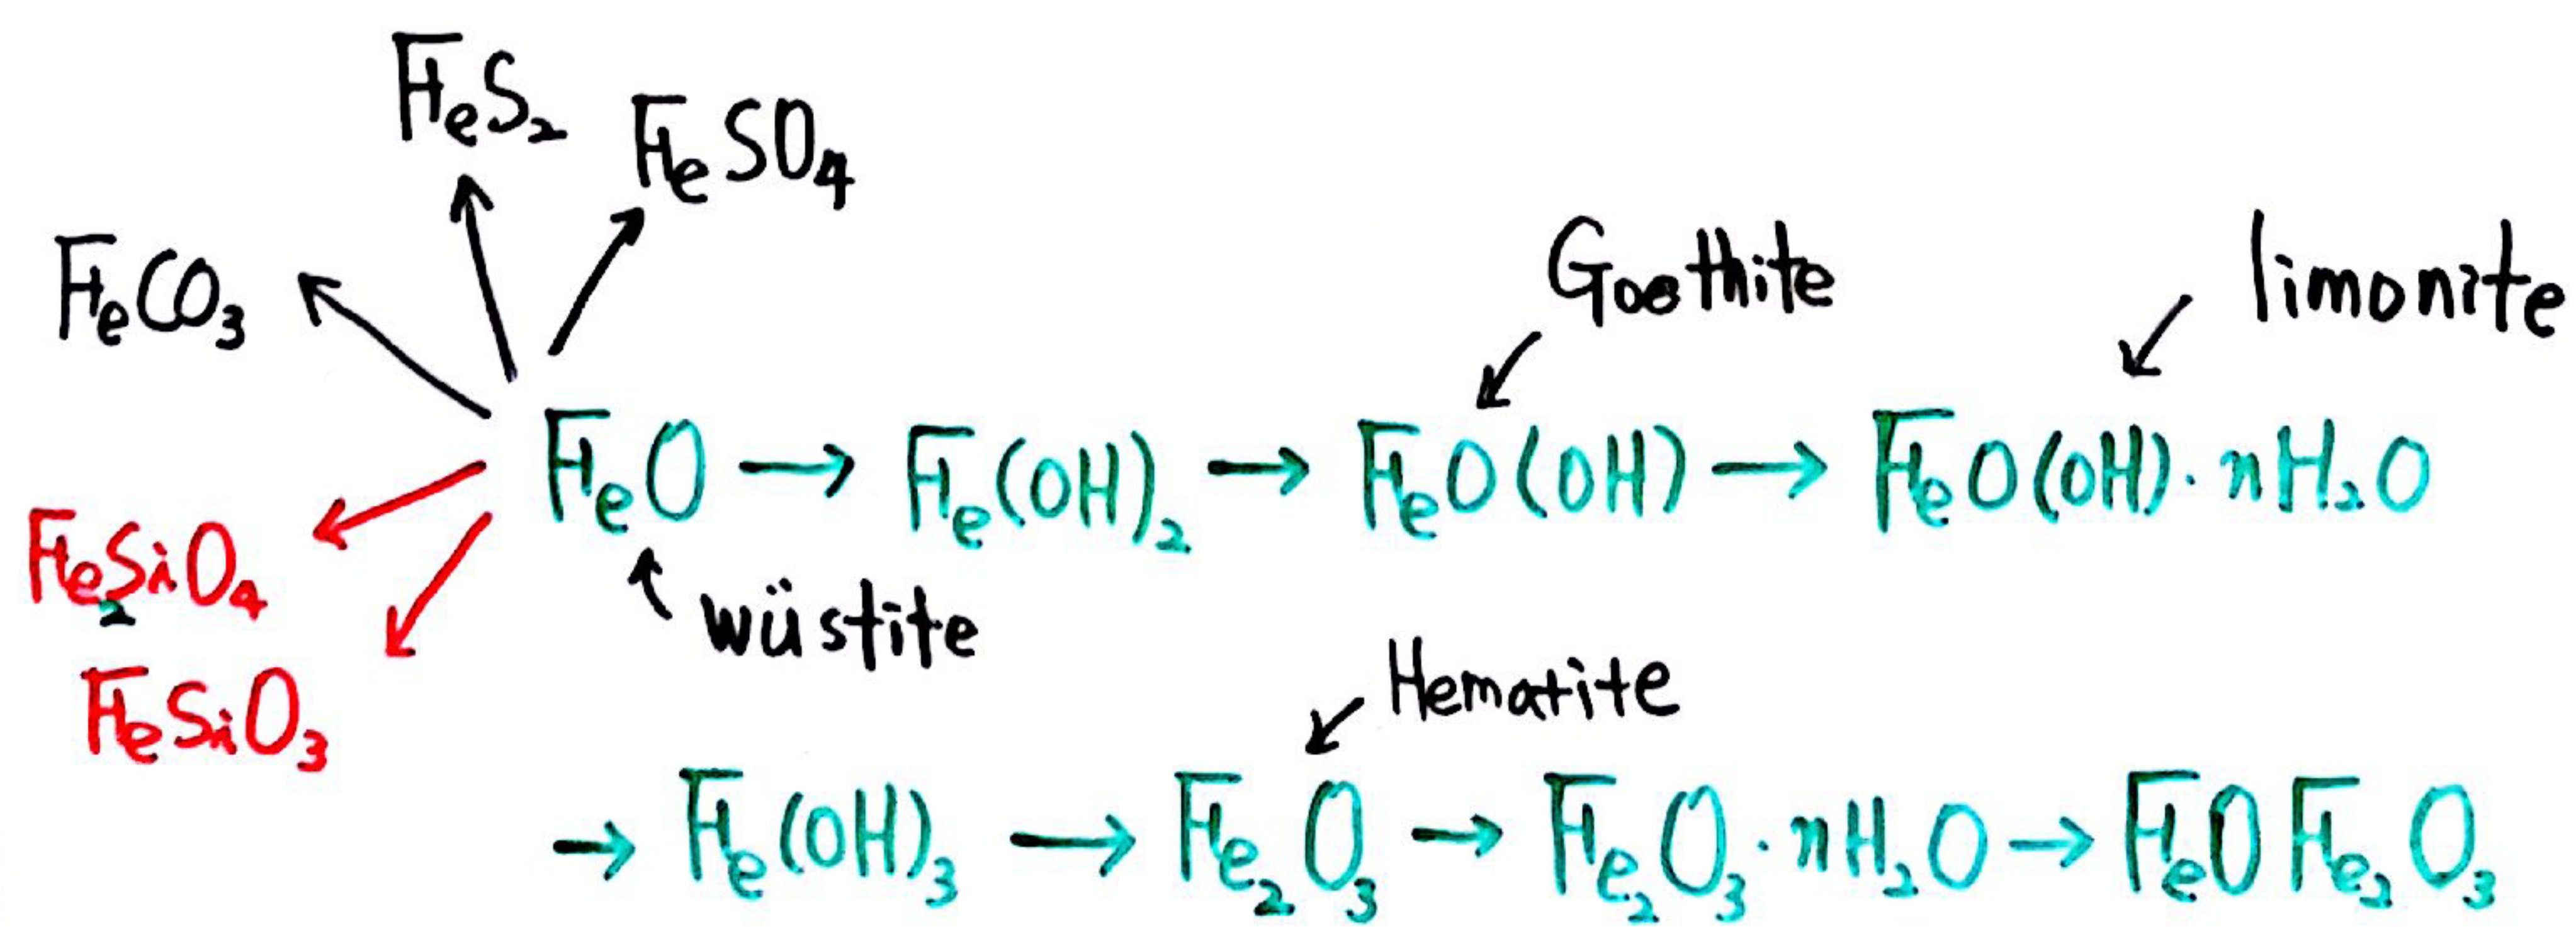 FeS₂
FeSO₄
FeCO₃
Goethite
limonite
FeO → Fe(OH)₂ → FeO(OH) → FeO(OH)·nH₂O
Fe₂SiO₄
wüstite
FeSiO₃
Hematite
→ Fe(OH)₃ → Fe₂O₃ → Fe₂O₃·nH₂O → FeOFe₂O₃